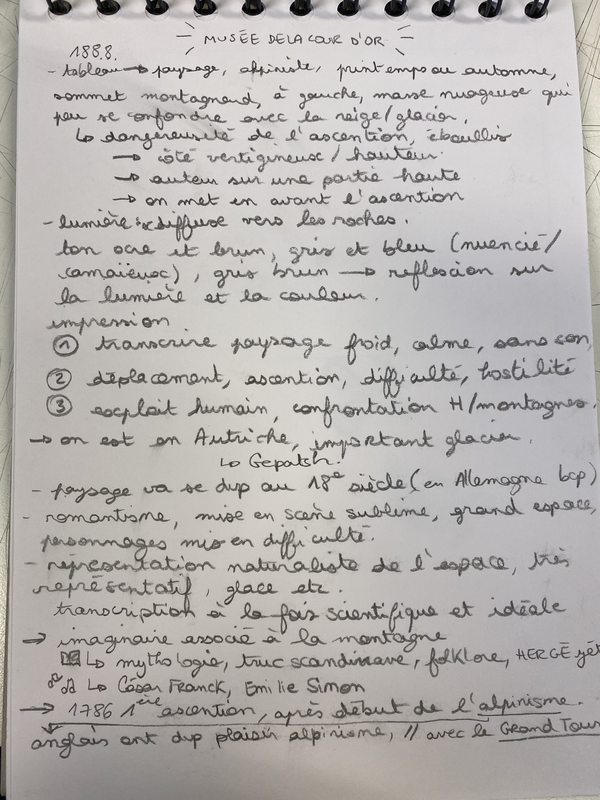 MUSÉE DE LA COUR D'OR
1888.
- tableau → paysage, alpiniste, printemps ou automne,
sommet montagneux, à gauche, masse nuageuse qui
peu se confondre avec la neige/glacier.
↳ dangereusité de l'ascention, éboullis
→ côté vertigineux / hauteur.
→ auteur sur une partie haute
→ on met en avant l'ascention
- lumière diffuse vers les roches.
ton ocre et brun, gris et bleu (nuencié/
camaïeux), gris brun → reflexion sur
la lumière et la couleur.
impression
① transcrire paysage froid, calme, sans son,
② déplacement, ascention, difficulté, hostilité
③ exploit humain, confrontation H/montagnes.
→ on est en Autriche, important glacier.
↳ Gepatsh.
- paysage va se dvp au 18e siècle (en Allemagne bcp)
- romantisme, mise en scène sublime, grand espace,
personnages mis en difficulté.
- représentation naturaliste de l'espace, très
représentatif, glace etc.
transcription à la fois scientifique et idéale
→ imaginaire associé à la montagne
↳ mythologie, truc scandinave, folklore, HERGÉ yét
↳ César Franck, Emilie Simon
→ 1786 1ère ascention, après début de l'alpinisme.
anglais ont dvp plaisir alpinisme, // avec le Grand Tour